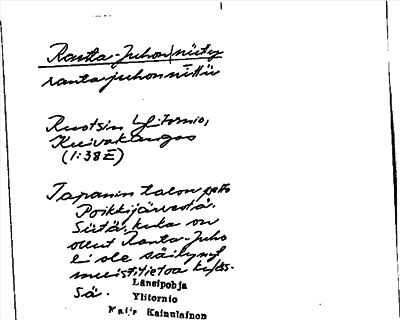 Rantta-Juhon niitty
rantajuhonnittü
Ruotsin Yli-Tornio,
Kuivakangas
(1:38E)
Tapanin talon pelto
Poikkijärvestä.
Siitä, kuka on
ollut Ranta-Juho
ei ole säilynyt
muistitietoa kyläs-
sä.
Länsipohja
Ylitornio
Kainulainen